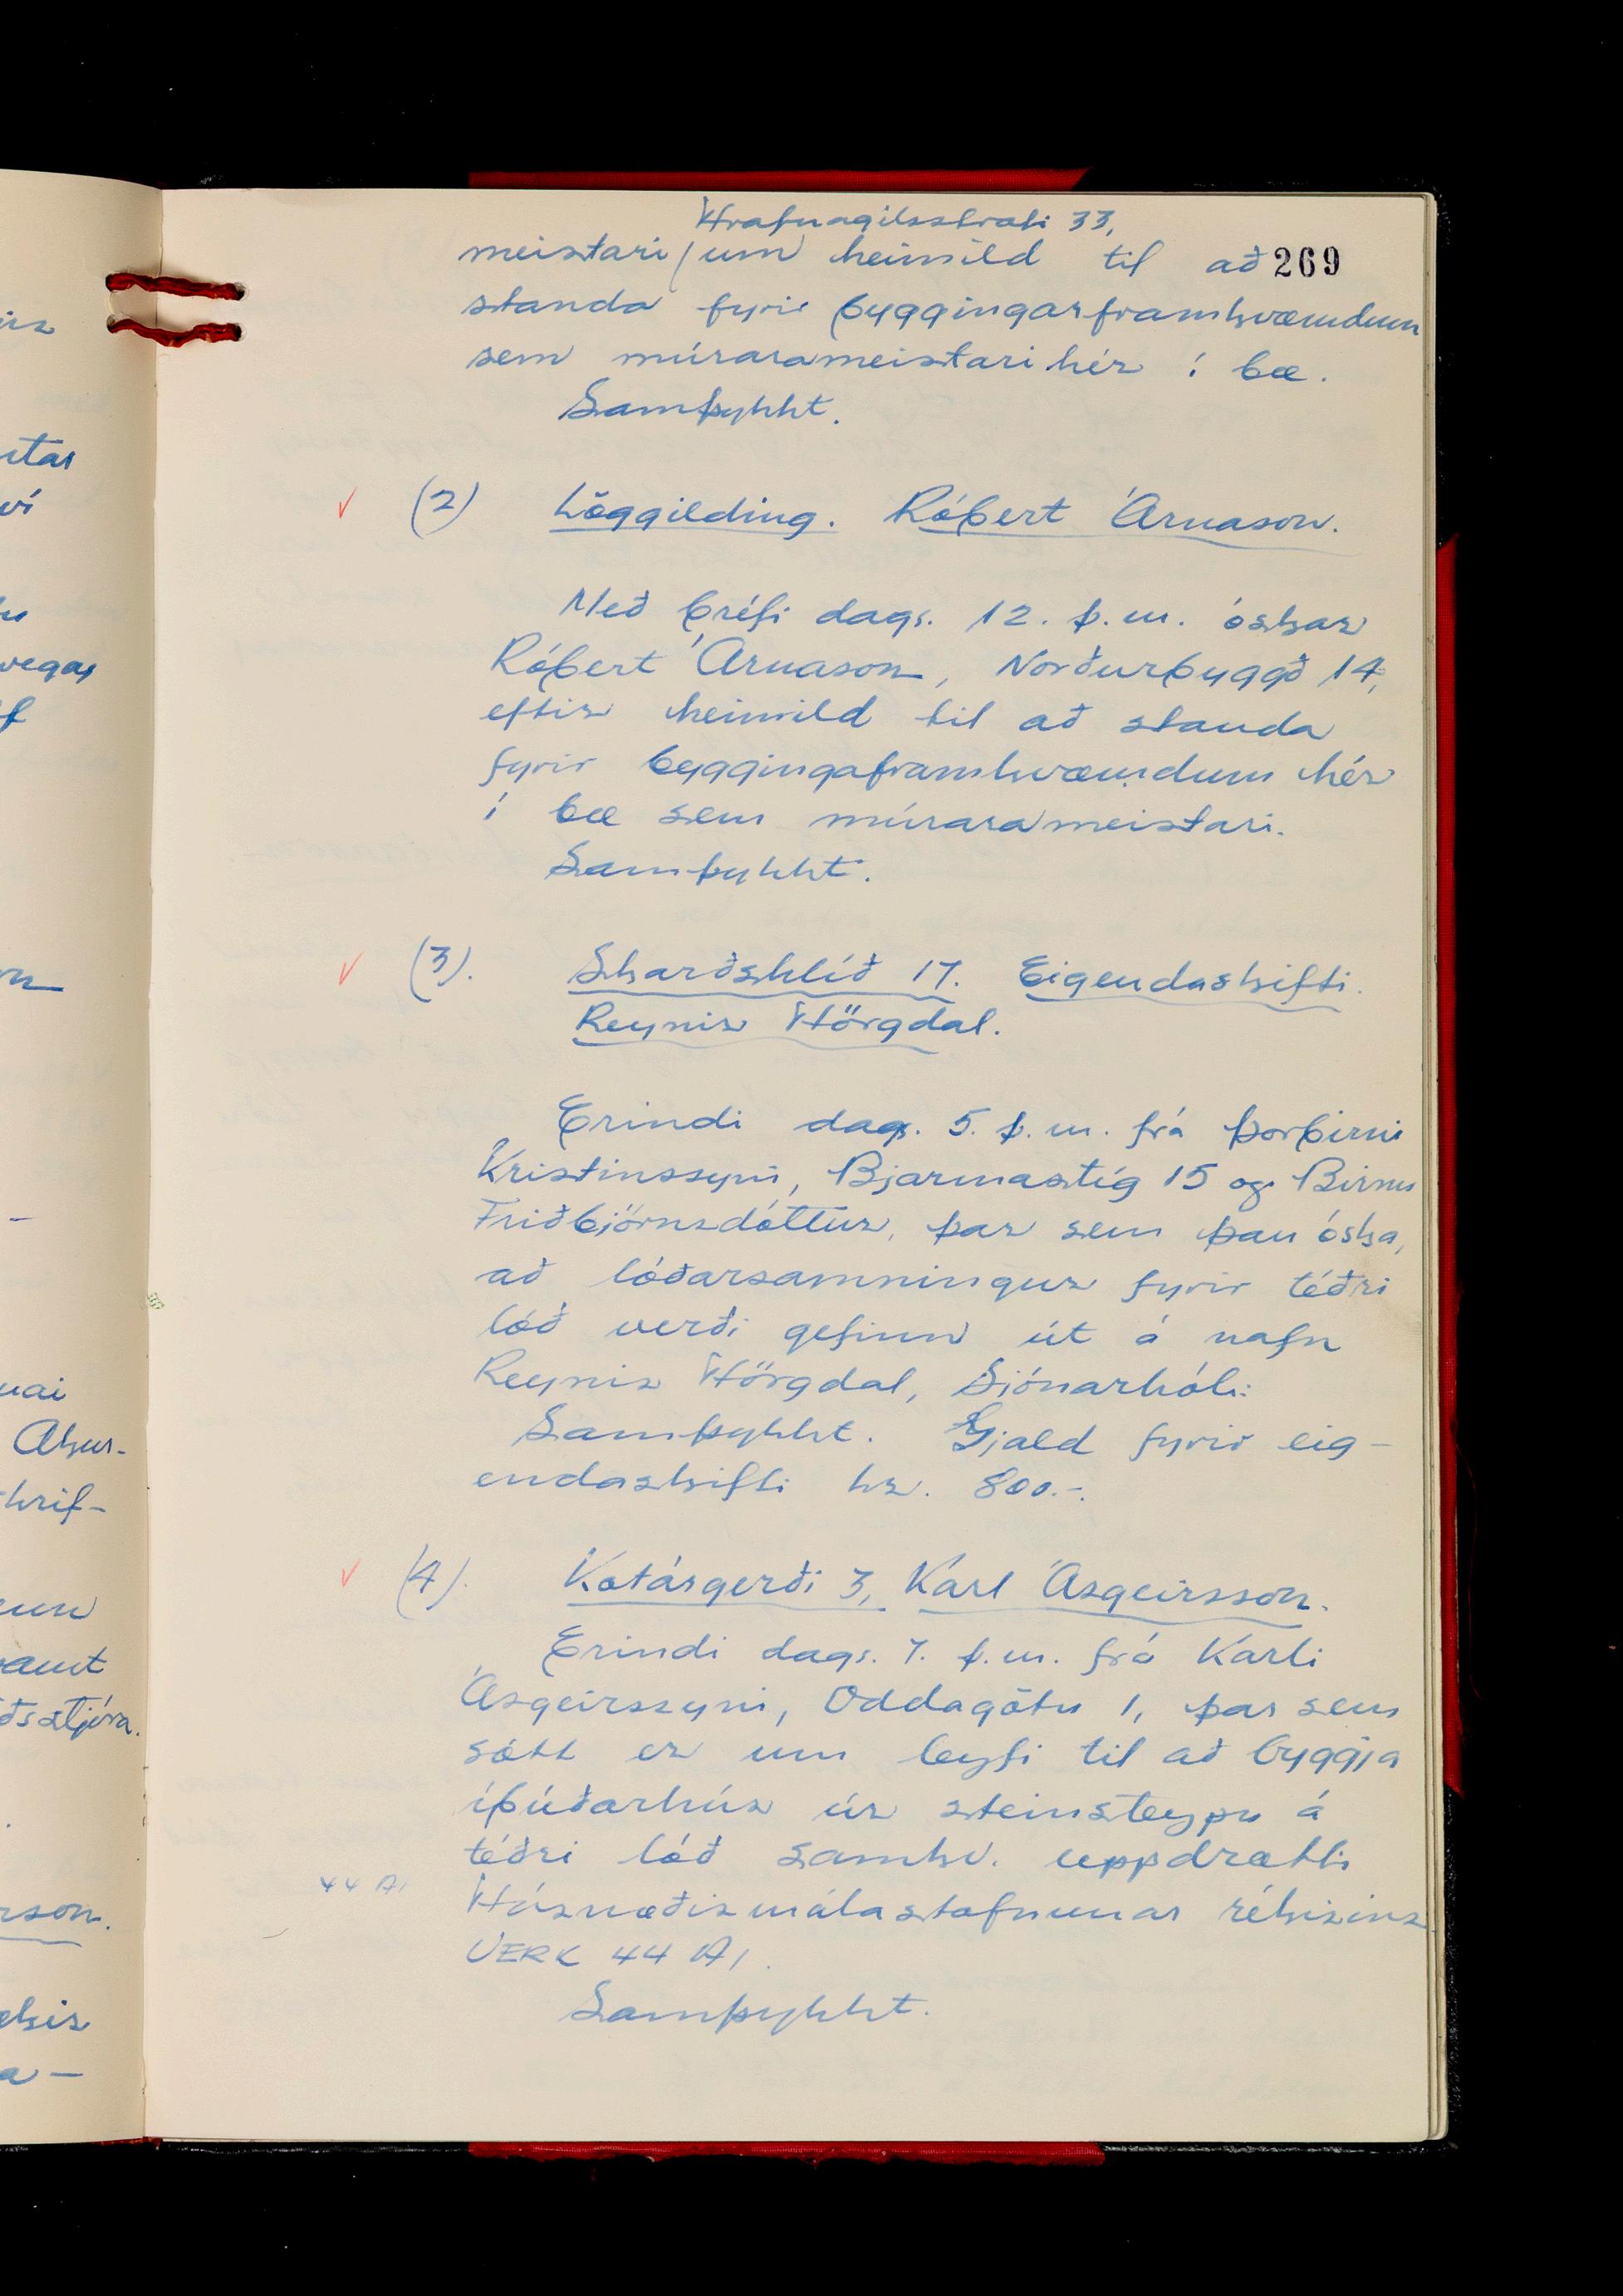 Hrafnagilsstræti 33,
meistari / um heimild til að 269
standa fyrir byggingarframkvæmdum
sem múrarameistari hér í bæ.
Samþykkt.
(2) Löggilding. Róbert Árnason.
Með bréfi dags. 12. þ.m. óskar
Róbert Árnason, Norðurbyggð 14,
eftir heimild til að standa
fyrir byggingaframkvæmdum hér
í bæ sem múrarameistari.
Samþykkt.
(3). Skarðshlíð 17. Eigendaskifti.
Reynir Hörgdal.
Erindi dags. 5. þ.m. frá Þorbirni
Kristinssyni, Bjarmastíg 15 og Birnu
Friðbjörnsdóttur, þar sem þau óska,
að lóðarsamningur fyrir téðri
lóð verði gefinn út á nafn
Reynis Hörgdal, Sjónarhóli.
Samþykkt. Gjald fyrir eig-
endaskifti kr. 800.-.
(4). Kotárgerði 3, Karl Ásgeirsson.
Erindi dags. 7. þ.m. frá Karli
Ásgeirssyni, Oddagötu 1, þar sem
sótt er um leyfi til að byggja
íbúðarhús úr steinsteypu á
téðri lóð samkv. uppdrætti
44 A1 Húsnæðismálastofnunar ríkisins
VERK 44 A1.
Samþykkt.